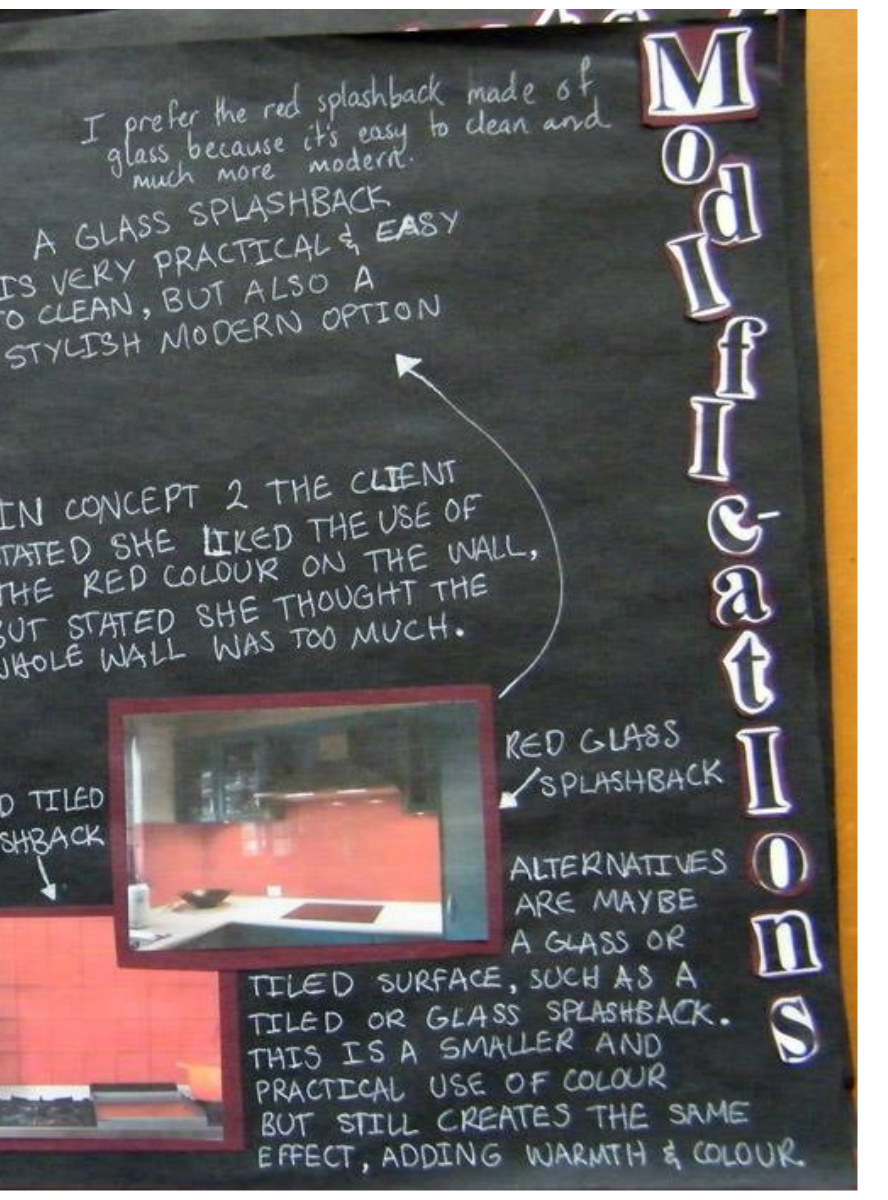 Modifications
I prefer the red splashback made of
glass because it's easy to clean and
much more modern.
A GLASS SPLASHBACK
IS VERY PRACTICAL & EASY
TO CLEAN, BUT ALSO A
STYLISH MODERN OPTION
IN CONCEPT 2 THE CLIENT
TATED SHE LIKED THE USE OF
THE RED COLOUR ON THE WALL,
BUT STATED SHE THOUGHT THE
WHOLE WALL WAS TOO MUCH.
RED GLASS
SPLASHBACK
D TILED
SHBACK
ALTERNATIVES
ARE MAYBE
A GLASS OR
TILED SURFACE, SUCH AS A
TILED OR GLASS SPLASHBACK.
THIS IS A SMALLER AND
PRACTICAL USE OF COLOUR
BUT STILL CREATES THE SAME
EFFECT, ADDING WARMTH & COLOUR.